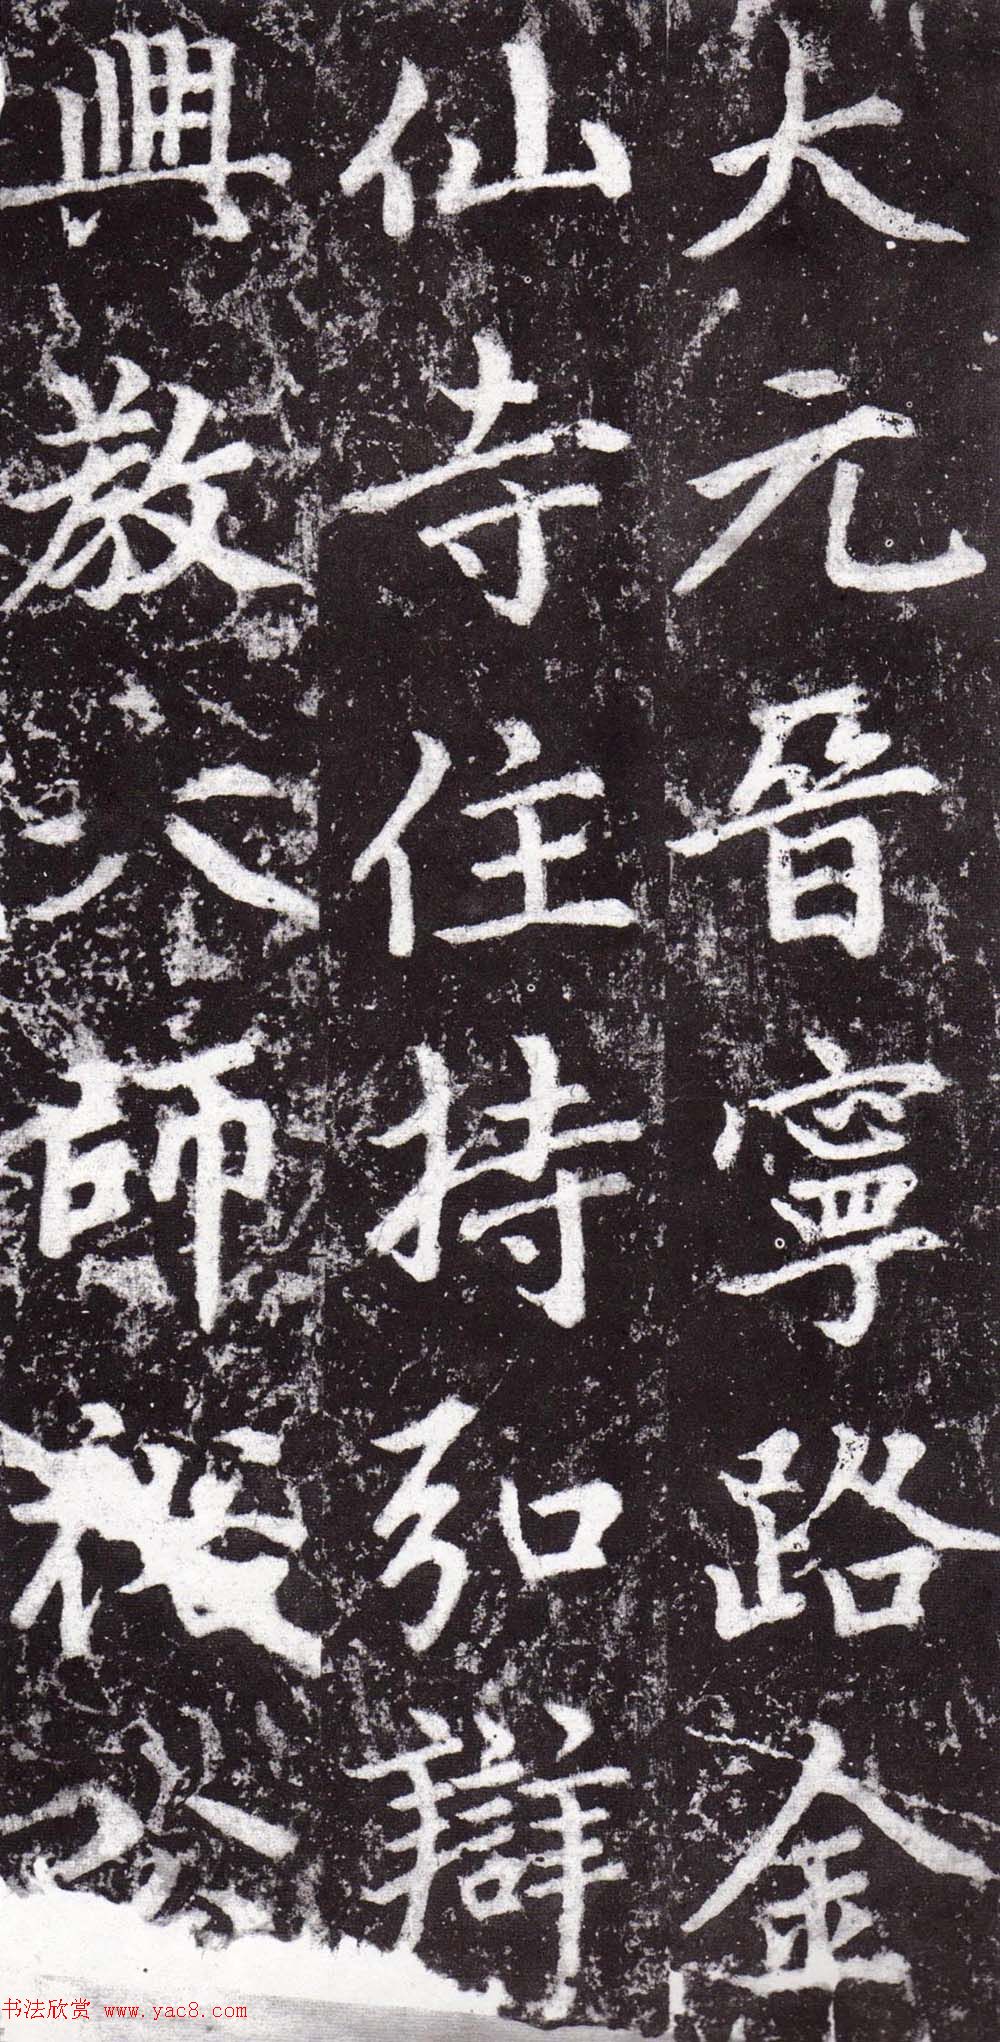 大元晉寧路金
仙寺住持弘辯
興教大師裕公
书法欣赏 www.yac8.com